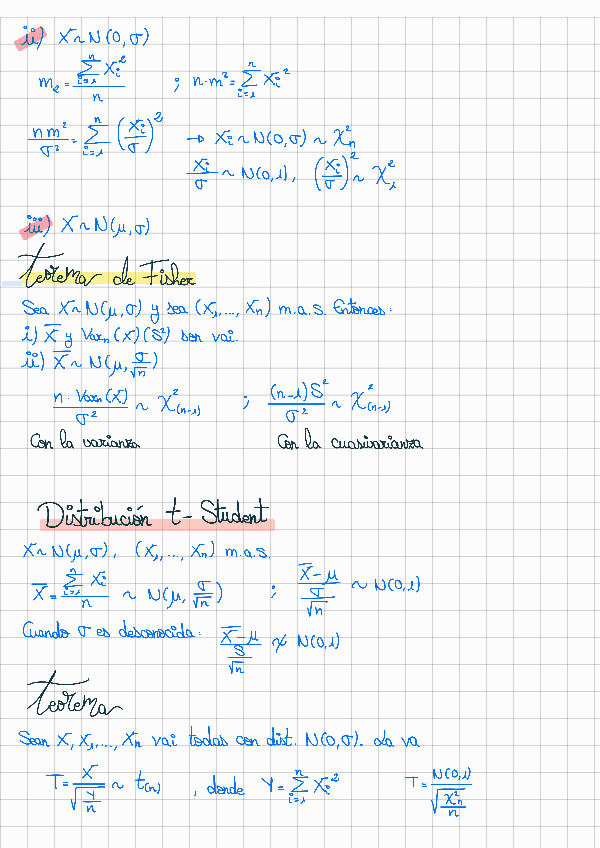 ii) X ~ N(0, σ)
m₂ = (∑_{i=1}^{n} Xᵢ²)/n ; n·m² = ∑_{i=1}^{n} Xᵢ²
(n m²)/σ² = ∑_{i=1}^{n} (Xᵢ/σ)² → Xᵢ ~ N(0, σ) ~ χ²ₙ
Xᵢ/σ ~ N(0, 1), (Xᵢ/σ)² ~ χ²₁
iii) X ~ N(μ, σ)
Teorema de Fisher
Sea X ~ N(μ, σ) y sea (X₁, ..., Xₙ) m.a.s. Entonces:
i) X̄ y Varₙ(X)(S²) son vai.
ii) X̄ ~ N(μ, σ/√n)
(n · Varₙ(X))/σ² ~ χ²₍ₙ₋₁₎ ; ((n-1)S²)/σ² ~ χ²₍ₙ₋₁₎
Con la varianza Con la cuasivarianza
Distribución t-Student
X ~ N(μ, σ), (X₁, ..., Xₙ) m.a.s.
X̄ = (∑_{i=1}^{n} Xᵢ)/n ~ N(μ, σ/√n) ; (X̄ - μ)/(σ/√n) ~ N(0, 1)
Cuando σ es desconocida: (X̄ - μ)/(S/√n) ≁ N(0, 1)
Teorema
Sean X, X₁, ..., Xₙ vai todas con dist. N(0, σ). La va
T = X/√(Y/n) ~ t₍ₙ₎, donde Y = ∑_{i=1}^{n} Xᵢ² T = N(0, 1)/√(χ²ₙ/n)